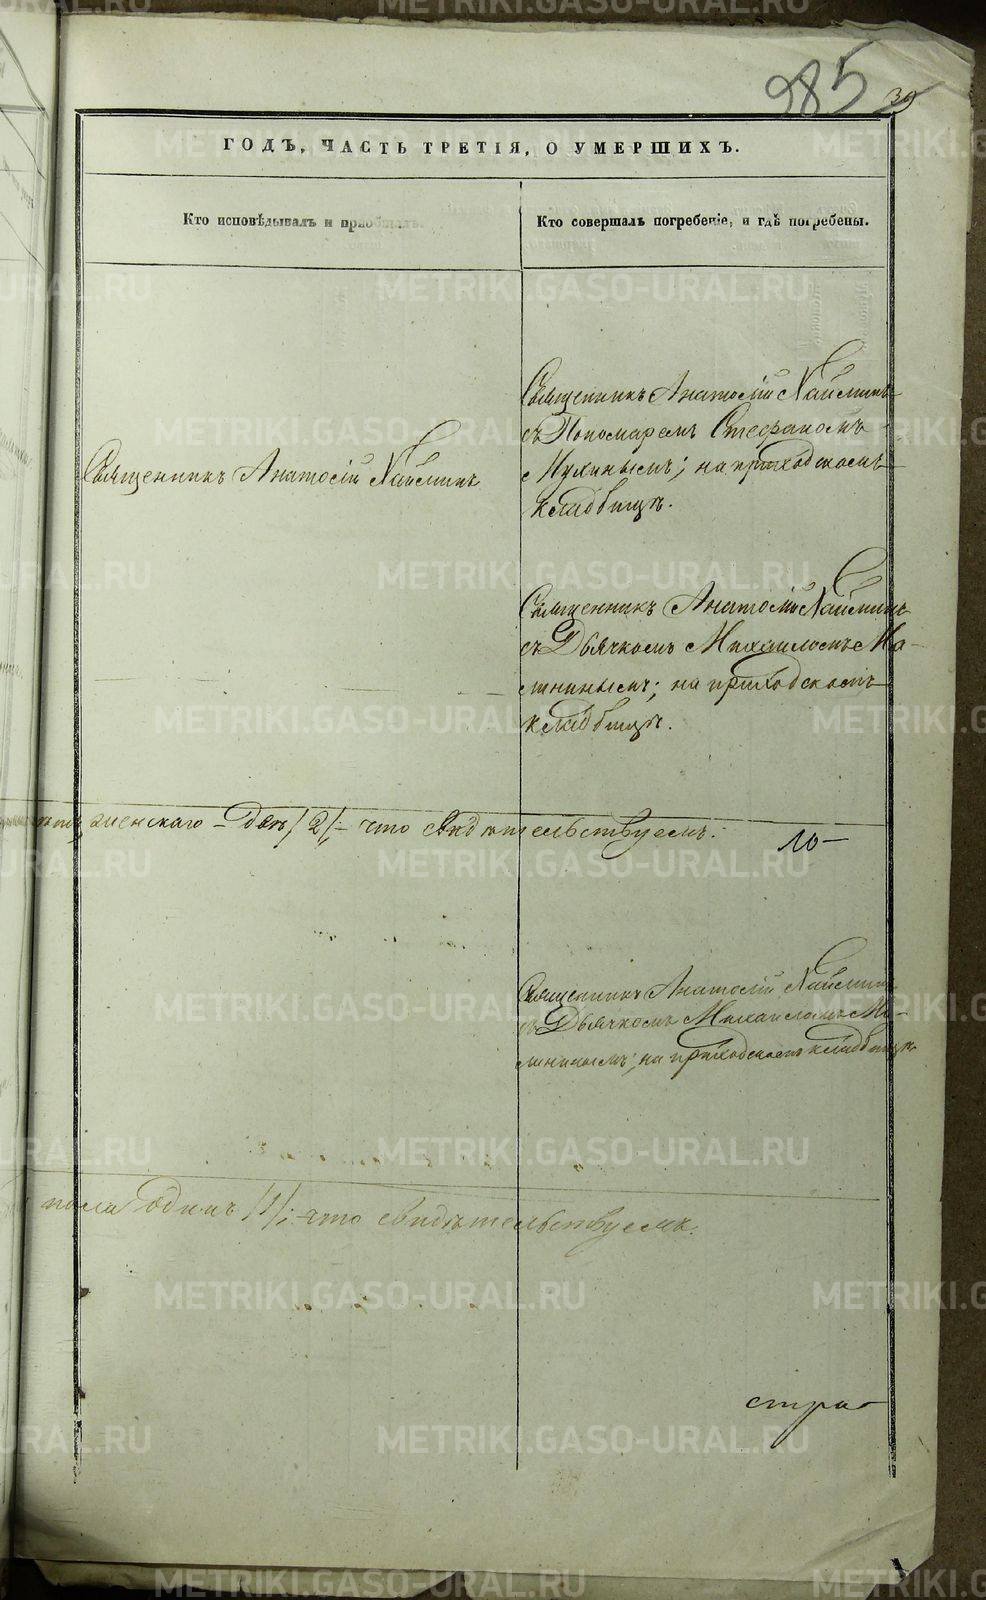 985
39
ГОДЪ, ЧАСТЬ ТРЕТІЯ, О УМЕРШИХЪ.
Кто исповѣдывалъ и пріобщалъ.
Кто совершалъ погребеніе, и гдѣ погребены.
Священникъ Анатолій
Священникъ Анатолій
съ Пономаремъ Стефаномъ
Мухинымъ; на приходскомъ
кладбищѣ.
Священникъ Анатолій
съ Дьячкомъ Михаиломъ Ма-
мнинымъ; на приходскомъ
кладбищѣ.
женскаго – двѣ /2/ – что свидѣтельствуемъ:
10 –
Священникъ Анатолій
съ Дьячкомъ Михаиломъ
на приходскомъ кладбищѣ
пола одинъ /1/; – что свидѣтельствуемъ.
METRIKI.GASO-URAL.RU